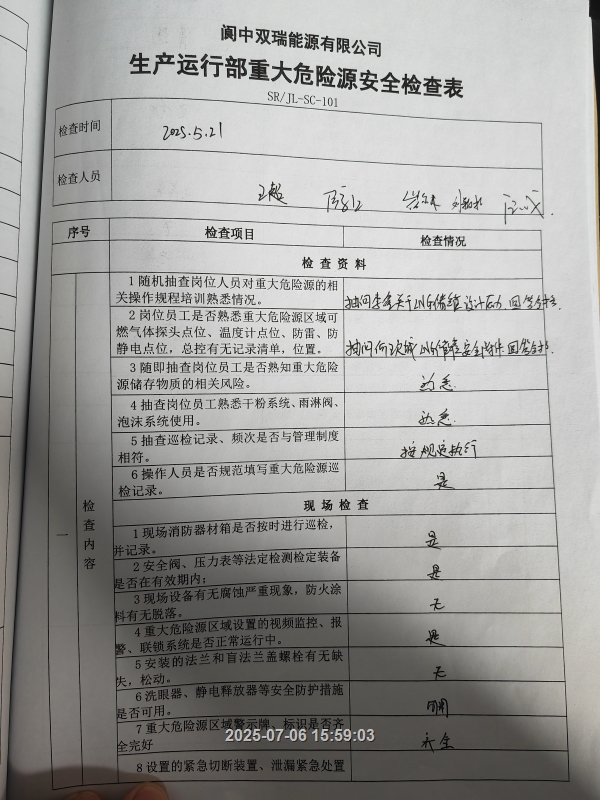 阆中双瑞能源有限公司
生产运行部重大危险源安全检查表
SR/JL-SC-101
检查时间
2025.5.21
检查人员
王超
序号
检查项目
检查情况
检查资料
1 随机抽查岗位人员对重大危险源的相
关操作规程培训熟悉情况。
抽问李 关于LNG储罐设计压力 回答
2 岗位员工是否熟悉重大危险源区域可
燃气体探头点位、温度计点位、防雷、防
静电点位，总控有无记录清单，位置。
抽问何 LNG储罐安全附件 回答
3 随即抽查岗位员工是否熟知重大危险
源储存物质的相关风险。
熟悉.
4 抽查岗位员工熟悉干粉系统、雨淋阀、
泡沫系统使用。
熟悉.
5 抽查巡检记录、频次是否与管理制度
相符。
按规定执行
6 操作人员是否规范填写重大危险源巡
检记录。
是
一
检查内容
现场检查
1 现场消防器材箱是否按时进行巡检，
并记录。
是
2 安全阀、压力表等法定检测检定装备
是否在有效期内；
是
3 现场设备有无腐蚀严重现象，防火涂
料有无脱落。
无
4 重大危险源区域设置的视频监控、报
警、联锁系统是否正常运行中。
是
5 安装的法兰和盲法兰盖螺栓有无缺
失，松动。
无
6 洗眼器、静电释放器等安全防护措施
是否可用。
可用
7 重大危险源区域警示牌、标识是否齐
全完好
齐全
8 设置的紧急切断装置、泄漏紧急处置
2025-07-06 15:59:03